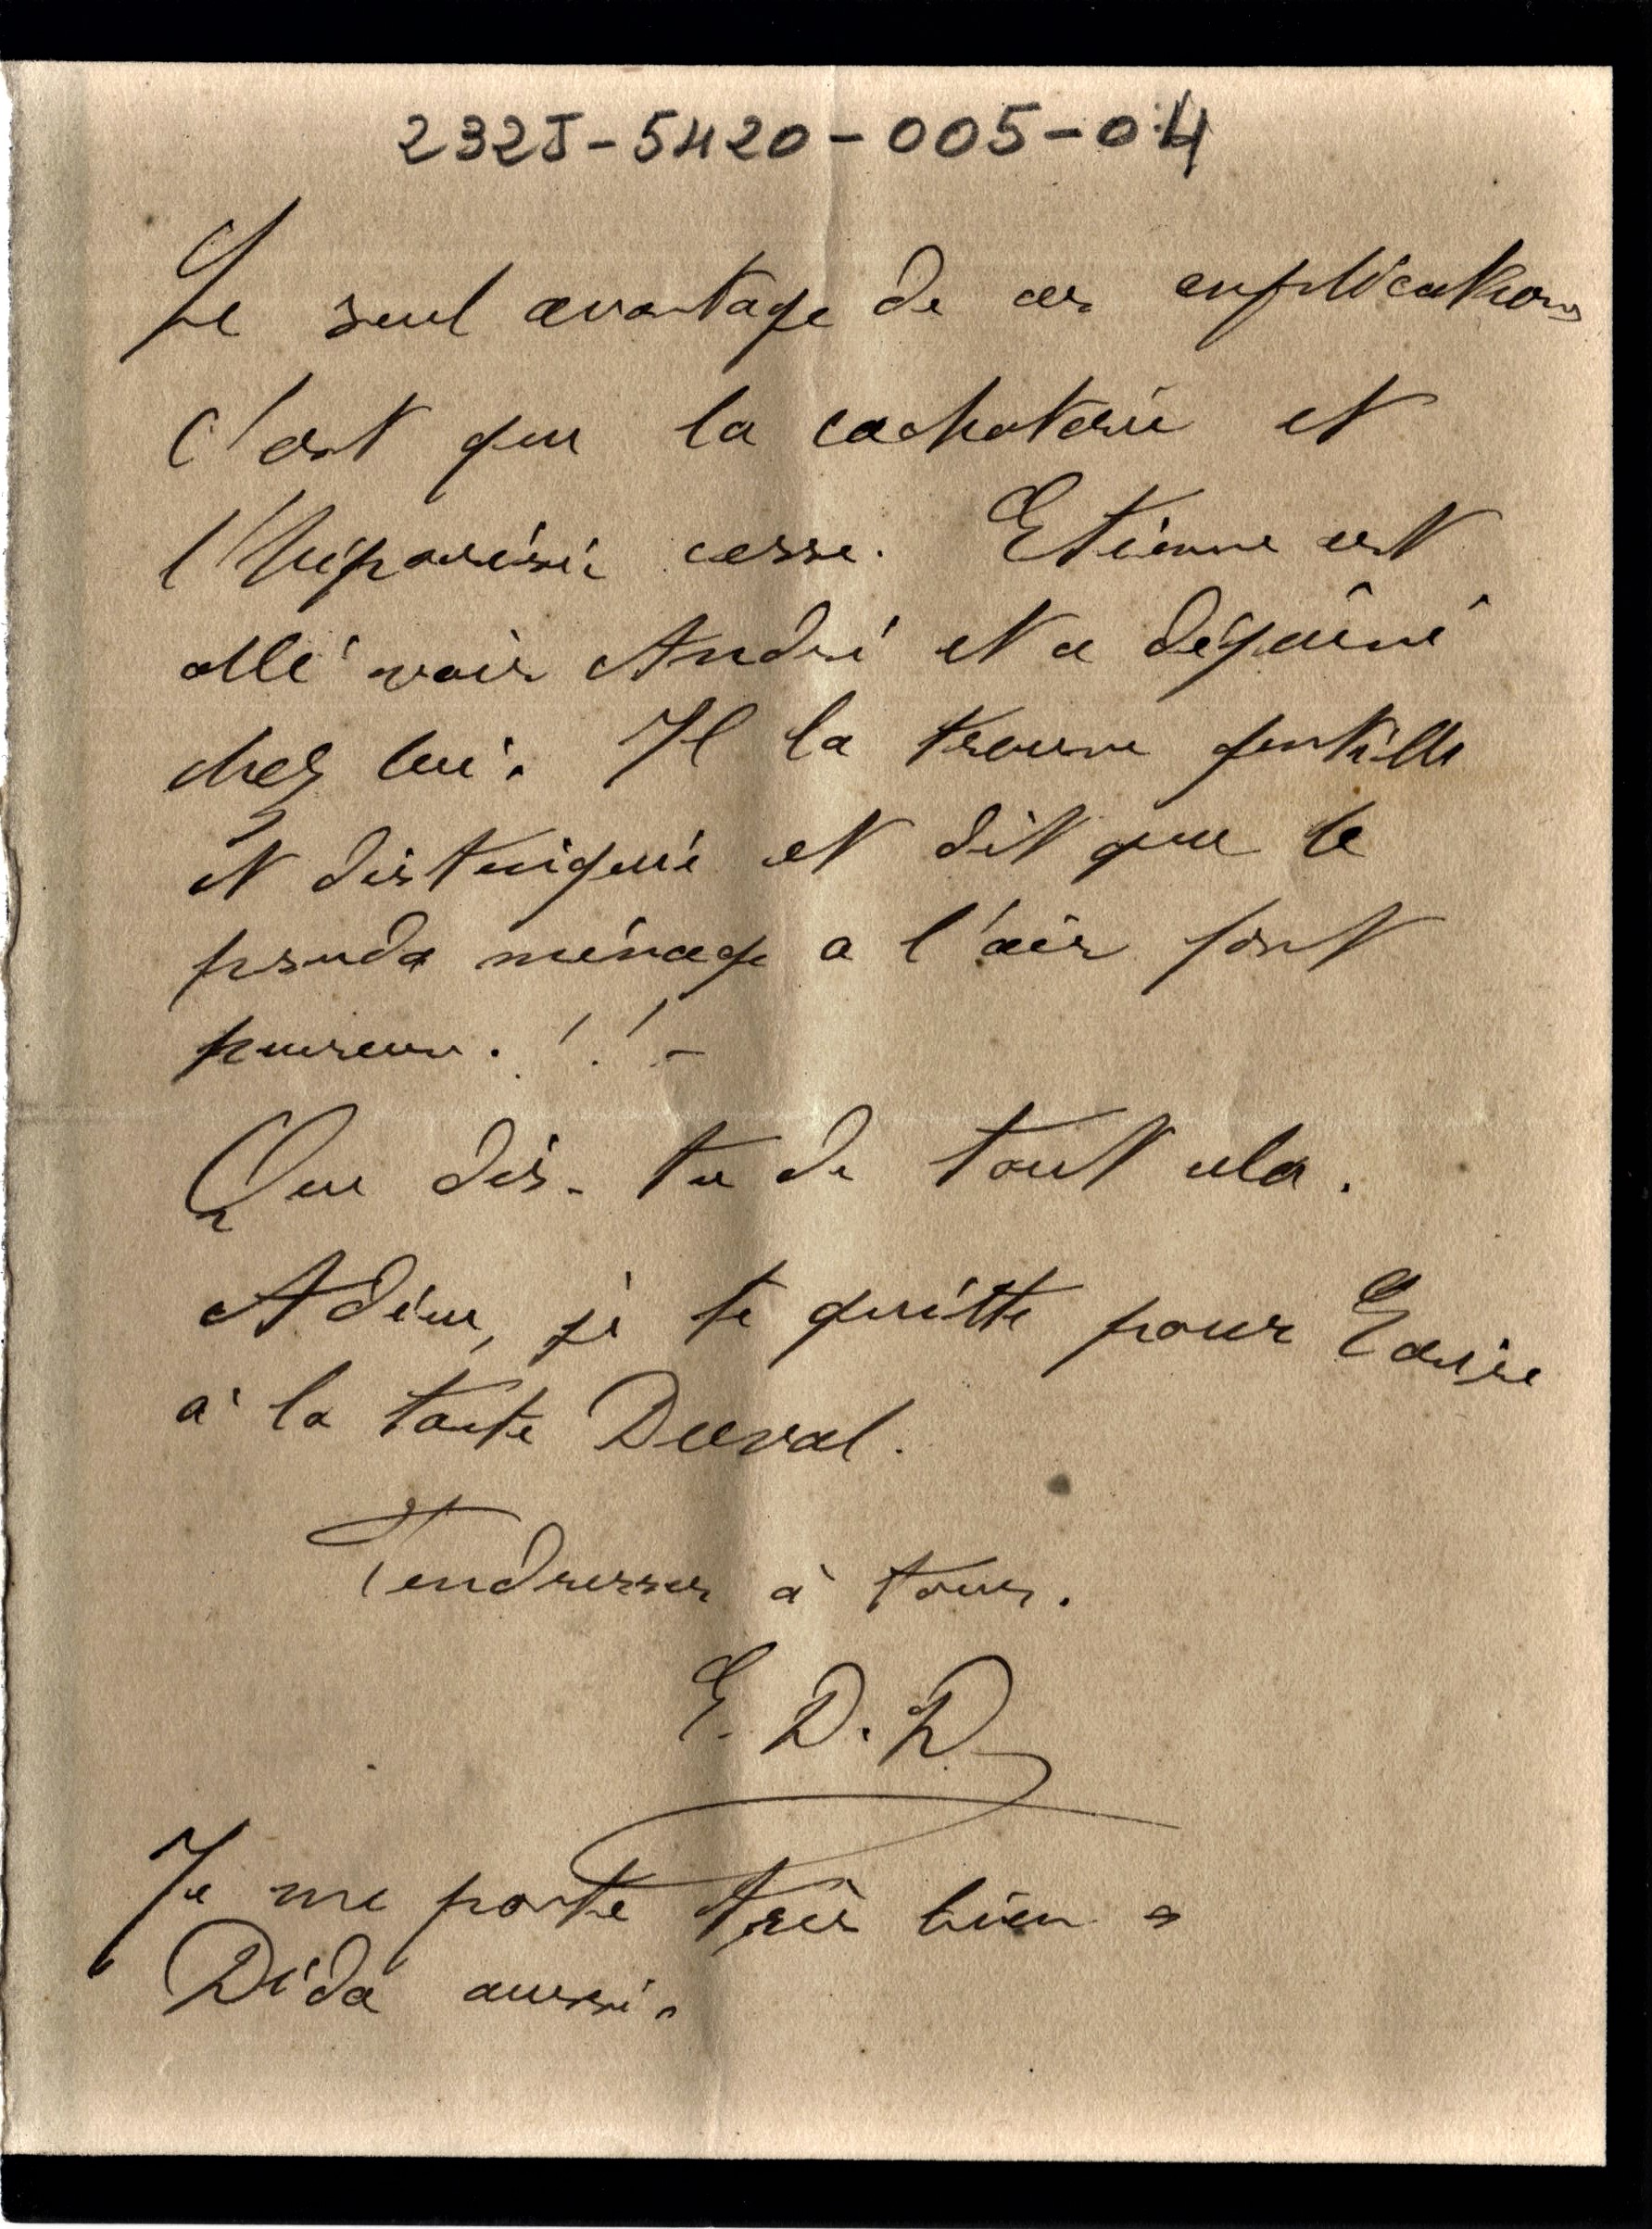 232J-5420-005-04
Le seul avantage de ces explications
c'est que la cachoterie et
l'hipocrisie cesse. Etienne est
allé voir André et a déjeûné
chez lui. Il la trouve gentille
et distinguée et dit que le
pseudo ménage a l'air fort
heureux. ! ! -
Que dis-tu de tout cela.
Adieu, je te quitte pour
à la tante Duval.
Tendresses à tous.
E. D. D
Je me porte très bien
Déda aussi.